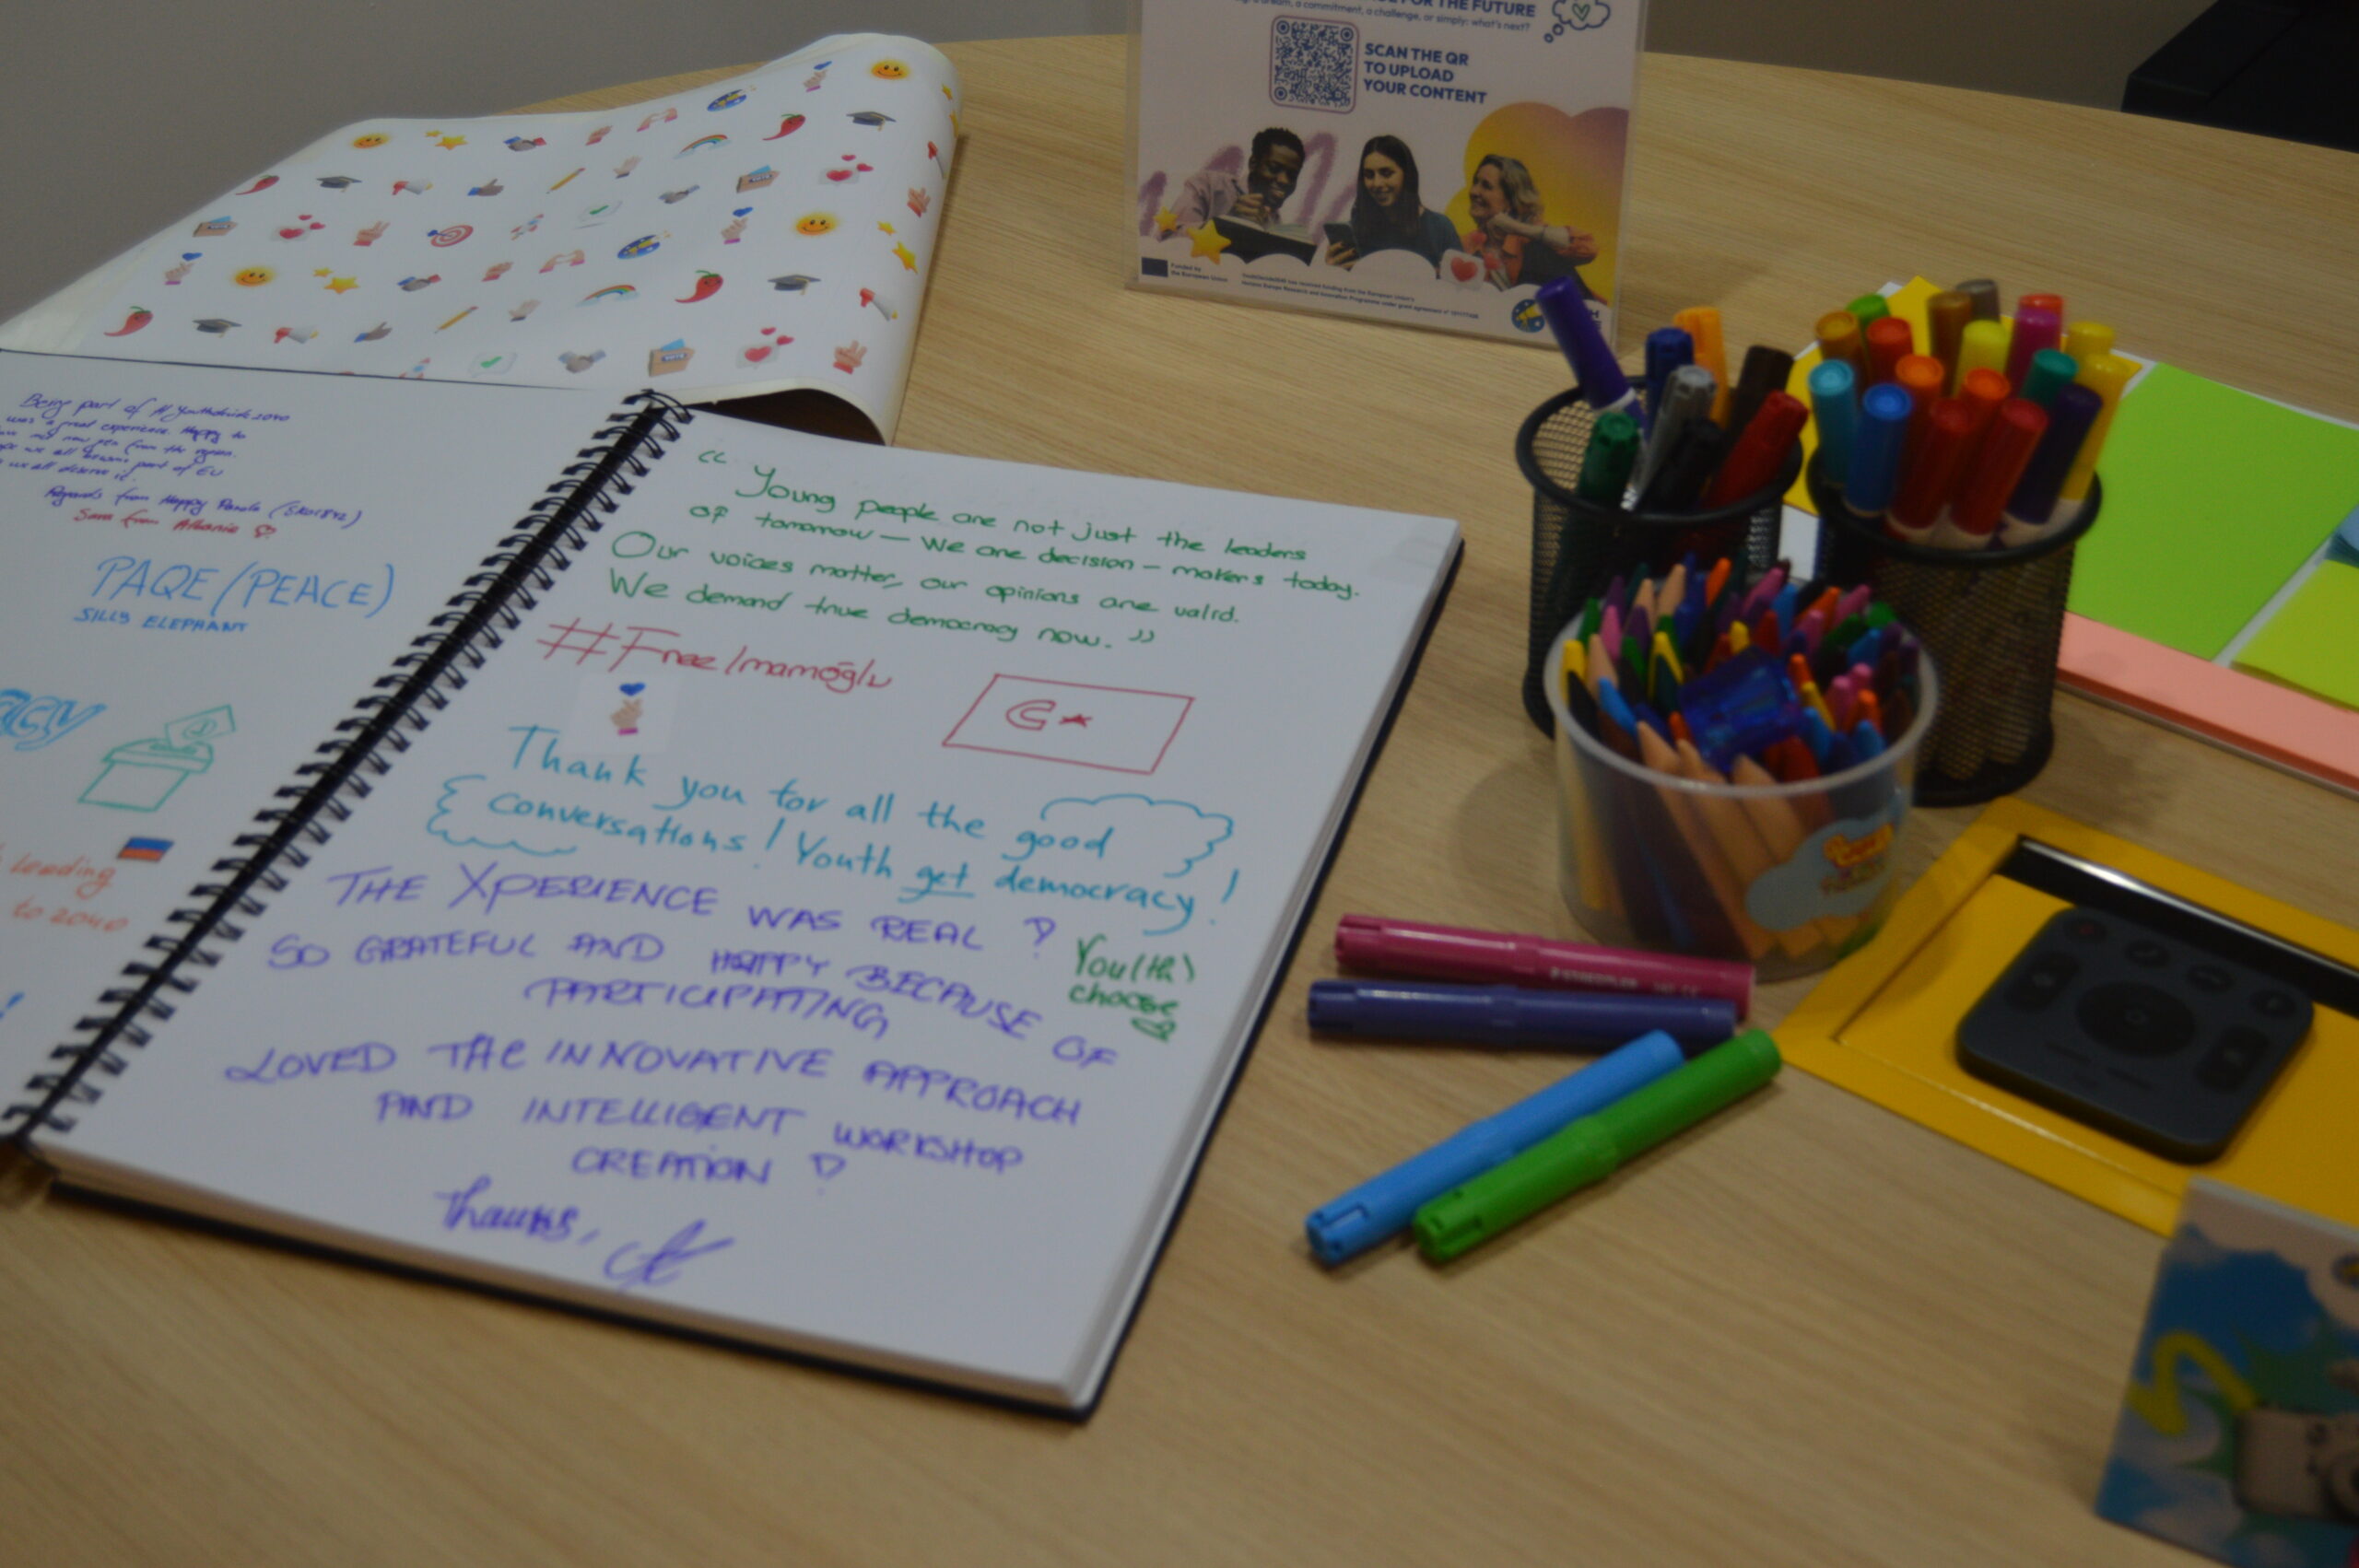 FOR THE FUTURE
a dream, a commitment, a challenge, or simply: what's next?
SCAN THE QR
TO UPLOAD
YOUR CONTENT
Funded by
the European Union
part of
was a great experience. Happy to
from the region.
we all part of EU
we all deserve it.
Regards from Happy
Sara from Albania
PAQE/(PEACE)
SILLY ELEPHANT
acy
leading
to 2040
“ Young people are not just the leaders
of tomorrow — We are decision - makers today.
Our voices matter, our opinions are valid.
We demand true democracy now. ”
#FreeImamoğlu
Thank you for all the good
conversations! Youth get democracy!
THE XPERIENCE WAS REAL !
SO GRATEFUL AND HAPPY BECAUSE OF
PARTICIPATING
You(th)
choose
LOVED THE INNOVATIVE APPROACH
AND INTELLIGENT WORKSHOP
CREATION !
Thanks,
STAEDTLER